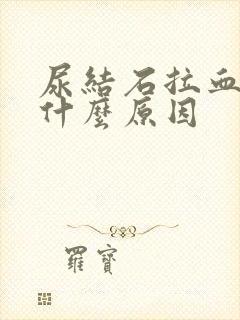 尿結石拉血
什麼原因
羅寶